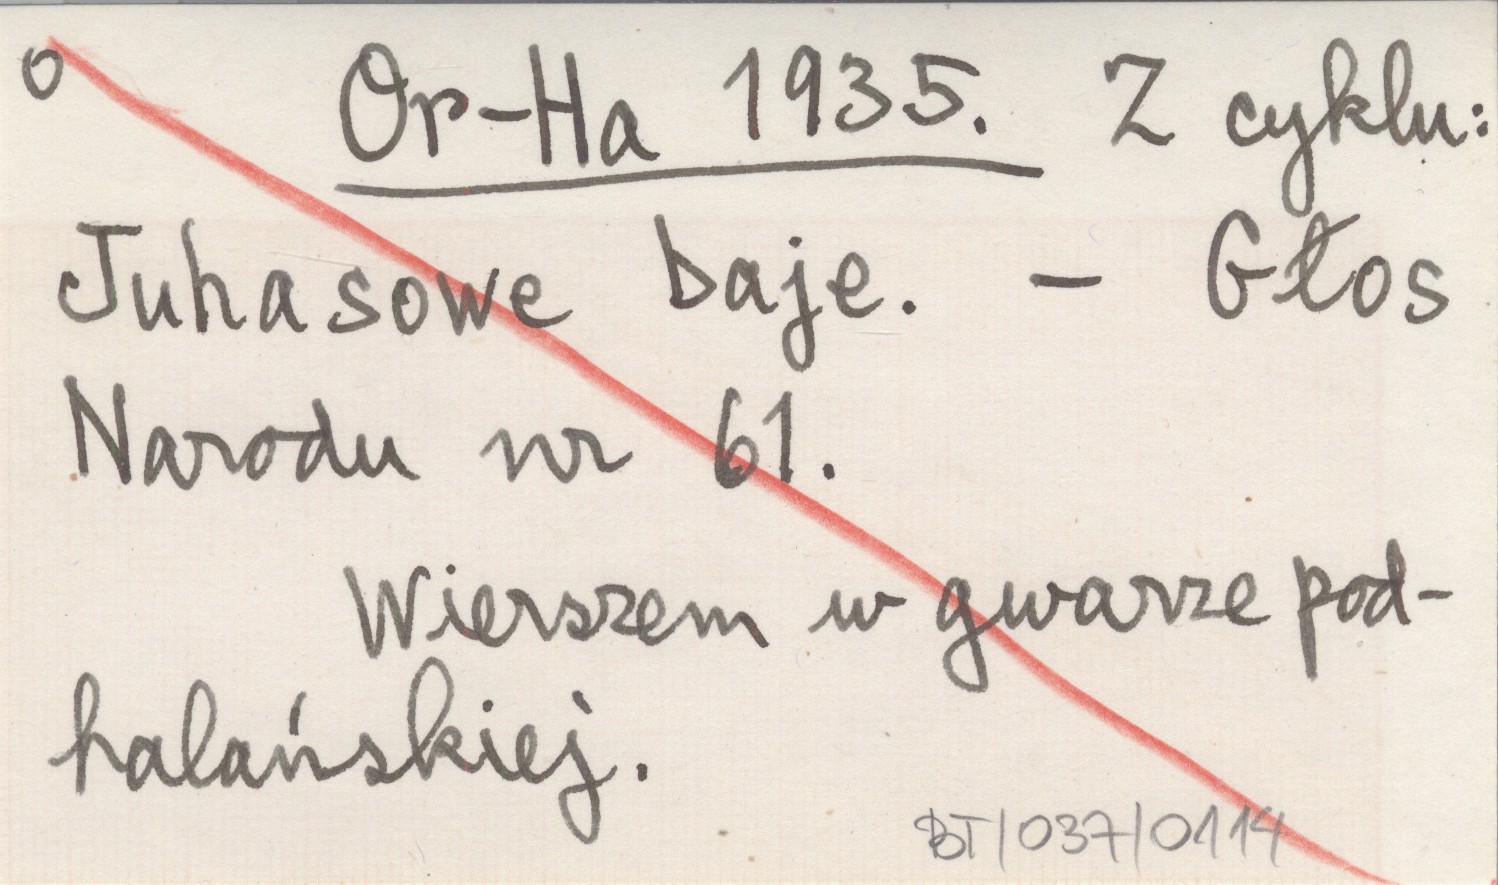 o Or-Ha 1935. Z cyklu:
Juhasowe baje. - Głos
Narodu nr 61.
Wierszem w gwarze pod-
halańskiej.
BT/037/0114